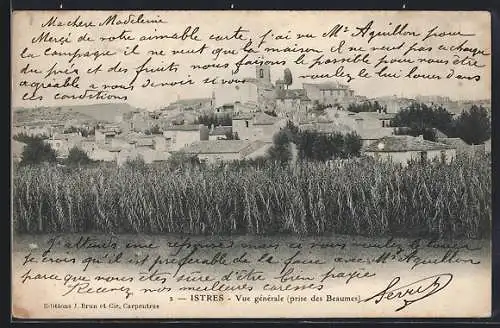 Ma chère Madeleine
Merci de votre aimable carte, j'ai vu Mr Aguillon pour
la campagne il ne veut que la maison il ne veut pas en charge
du prix et des fruits nous ferons le possible pour
agréable à nous de vous savoir ici voulez le lui loués dans
ces conditions
J'attends une réponse mais ne vous voulez le louer
je crois qu'il est préférable de la faire avec Mr Aguillon
parce que nous serions sûre d'être bien payé
Recevez nos meilleures caresses
Serres
2 — ISTRES - Vue générale (prise des Beaumes)
Editions J. Brun et Cie, Carpentras